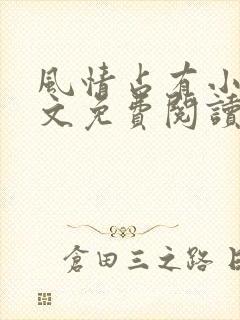 風情占有小
文免費閱讀
倉田三之路